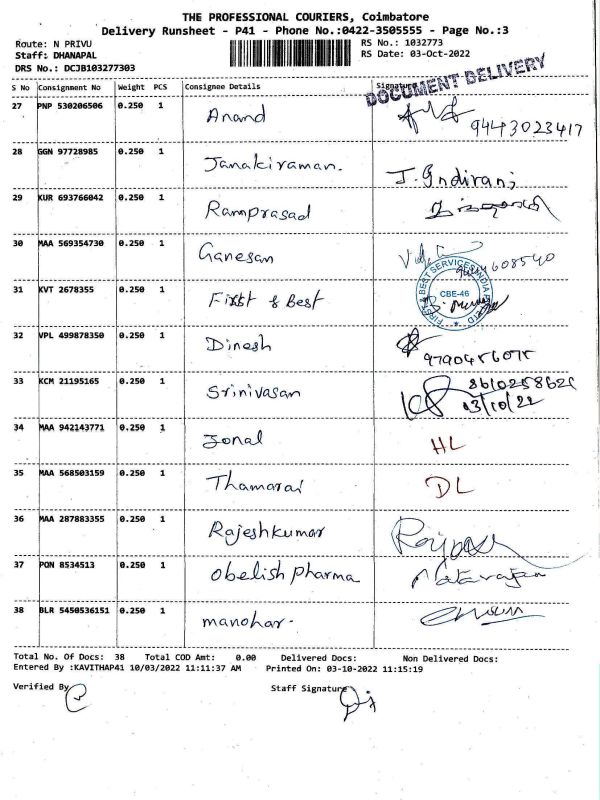 THE PROFESSIONAL COURIERS, Coimbatore
Delivery Runsheet - P41 - Phone No.:0422-3505555 - Page No.:3
Route: N PRIVU
RS No.: 1032773
Staff: DHANAPAL
RS Date: 03-Oct-2022
DRS No.: DCJB103277303
DOCUMENT DELIVERY
S No Consignment No Weight PCS Consignee Details Signature
27 PNP 530206506 0.250 1 Anand 9443023417
28 GGN 97728985 0.250 1 Janakiraman. J. Indirani
29 KUR 693766042 0.250 1 Ramprasad
30 MAA 569354730 0.250 1 Ganesan 608540
31 KVT 2678355 0.250 1 First & Best
FIRST BEST SERVICES INDIA
CBE-46
32 VPL 499878350 0.250 1 Dinesh 9790456075
33 KCM 21195165 0.250 1 Srinivasan 03/10/22
34 MAA 942143771 0.250 1 Jonal HL
35 MAA 568503159 0.250 1 Thamarai DL
36 MAA 287883355 0.250 1 Rajeshkumar
37 PON 8534513 0.250 1 Obelish pharma Natarajan
38 BLR 5450536151 0.250 1 manohar.
Total No. Of Docs: 38 Total COD Amt: 0.00 Delivered Docs: Non Delivered Docs:
Entered By :KAVITHAP41 10/03/2022 11:11:37 AM Printed On: 03-10-2022 11:15:19
Verified By
Staff Signature